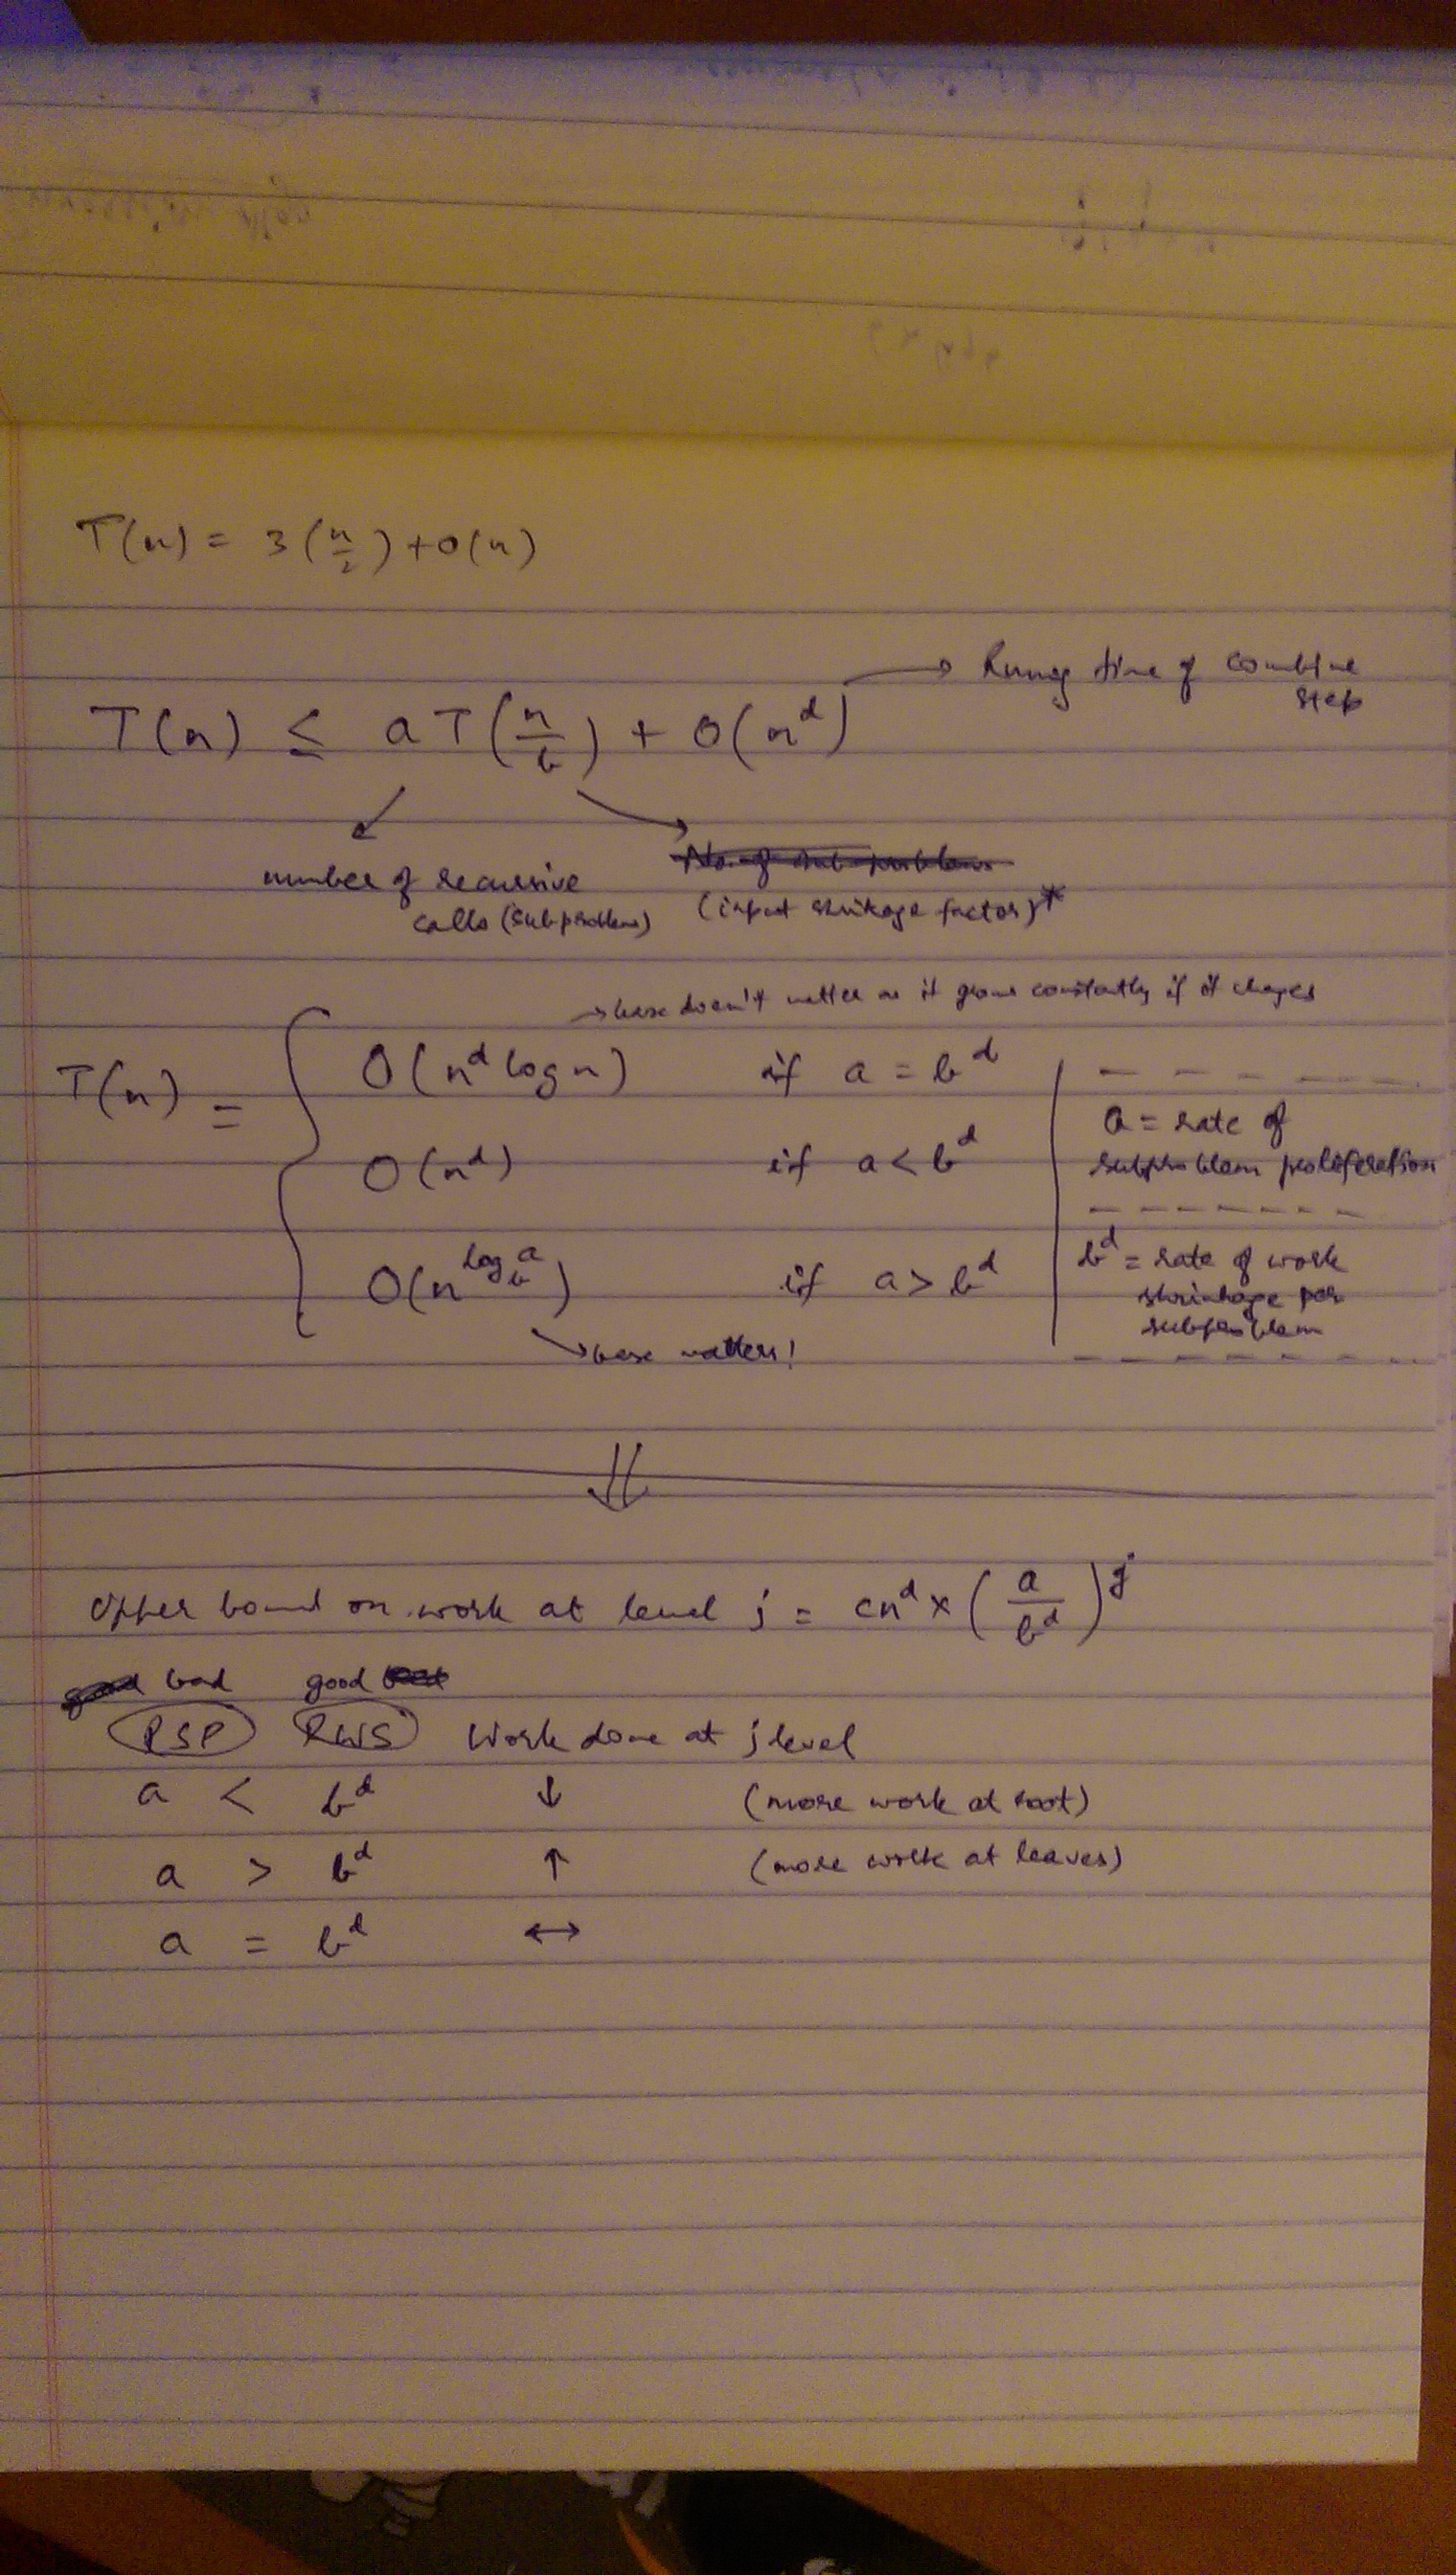 T(n) = 3(n/2) + O(n)
→ Runng time of combine
step
T(n) ≤ aT(n/b) + O(n^d)
number of recursive
calls (subproblems)
No. of sub-problems
(input shrikage factor)*
→ base doesn't matter as it grows constantly if it changes
T(n) = { O(n^d log n) if a = b^d
O(n^d) if a < b^d
O(n^(log_b a)) if a > b^d
→ base matters!
a = rate of
subproblem proliferation
b^d = rate of work
shrinkage per
subproblem
Upper bound on work at level j = cn^d × (a/b^d)^j
good bad good bad
RSP RWS Work done at j level
a < b^d ↓ (more work at root)
a > b^d ↑ (more work at leaves)
a = b^d ↔